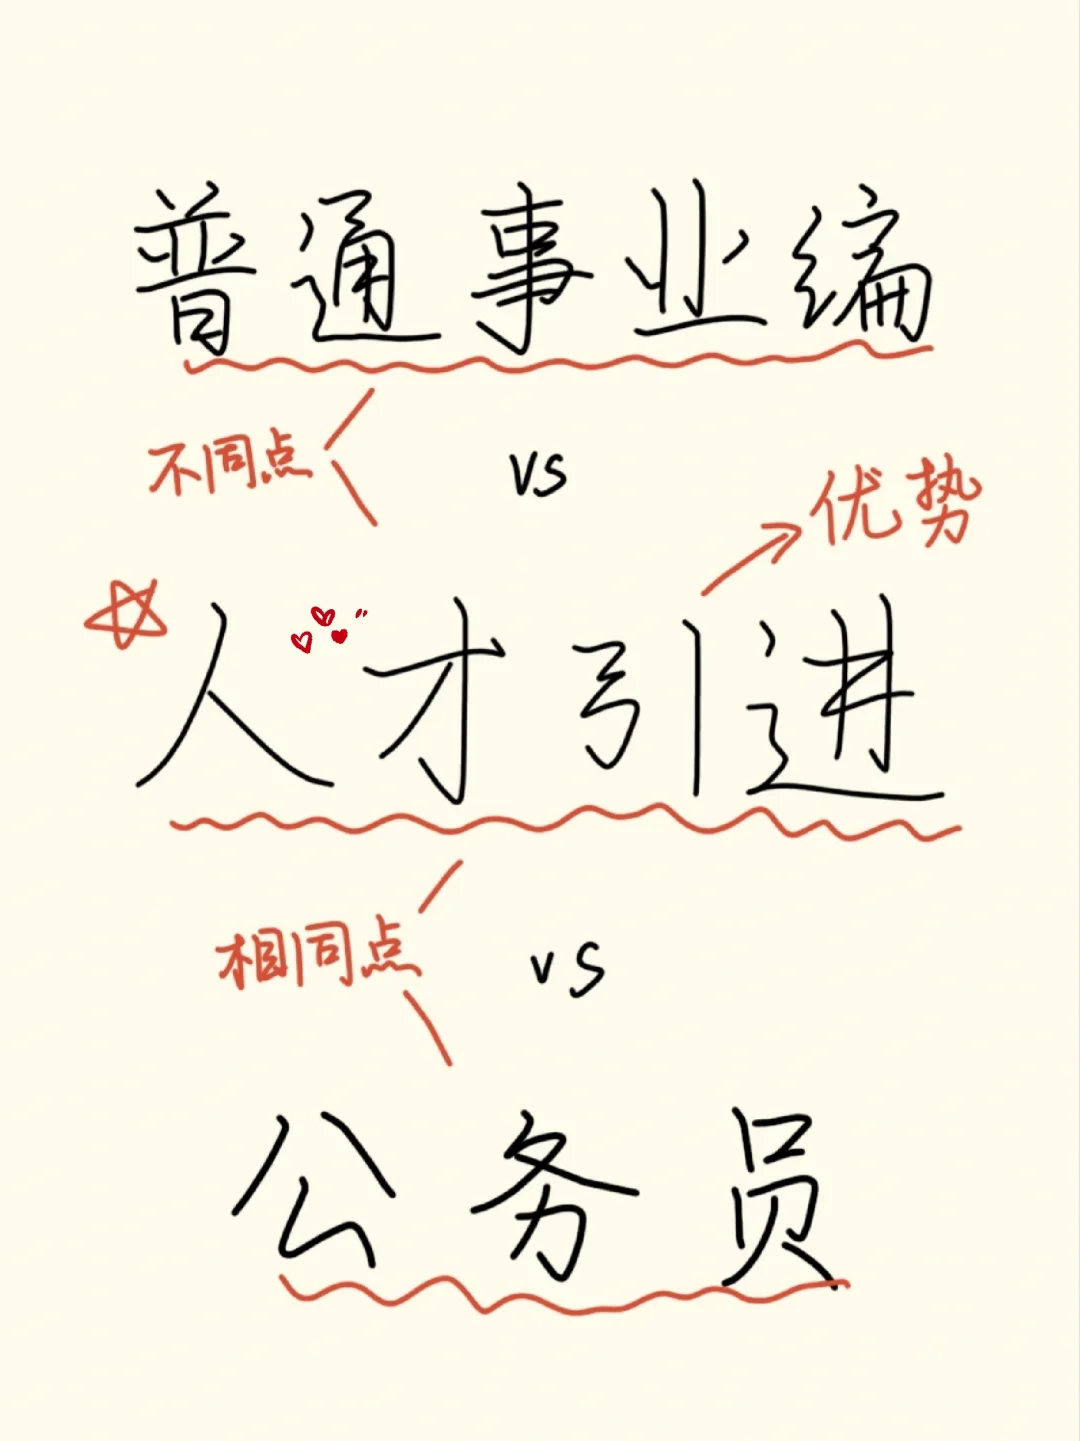 普通事业编
不同点
vs
优势
人才引进
相同点
vs
公务员